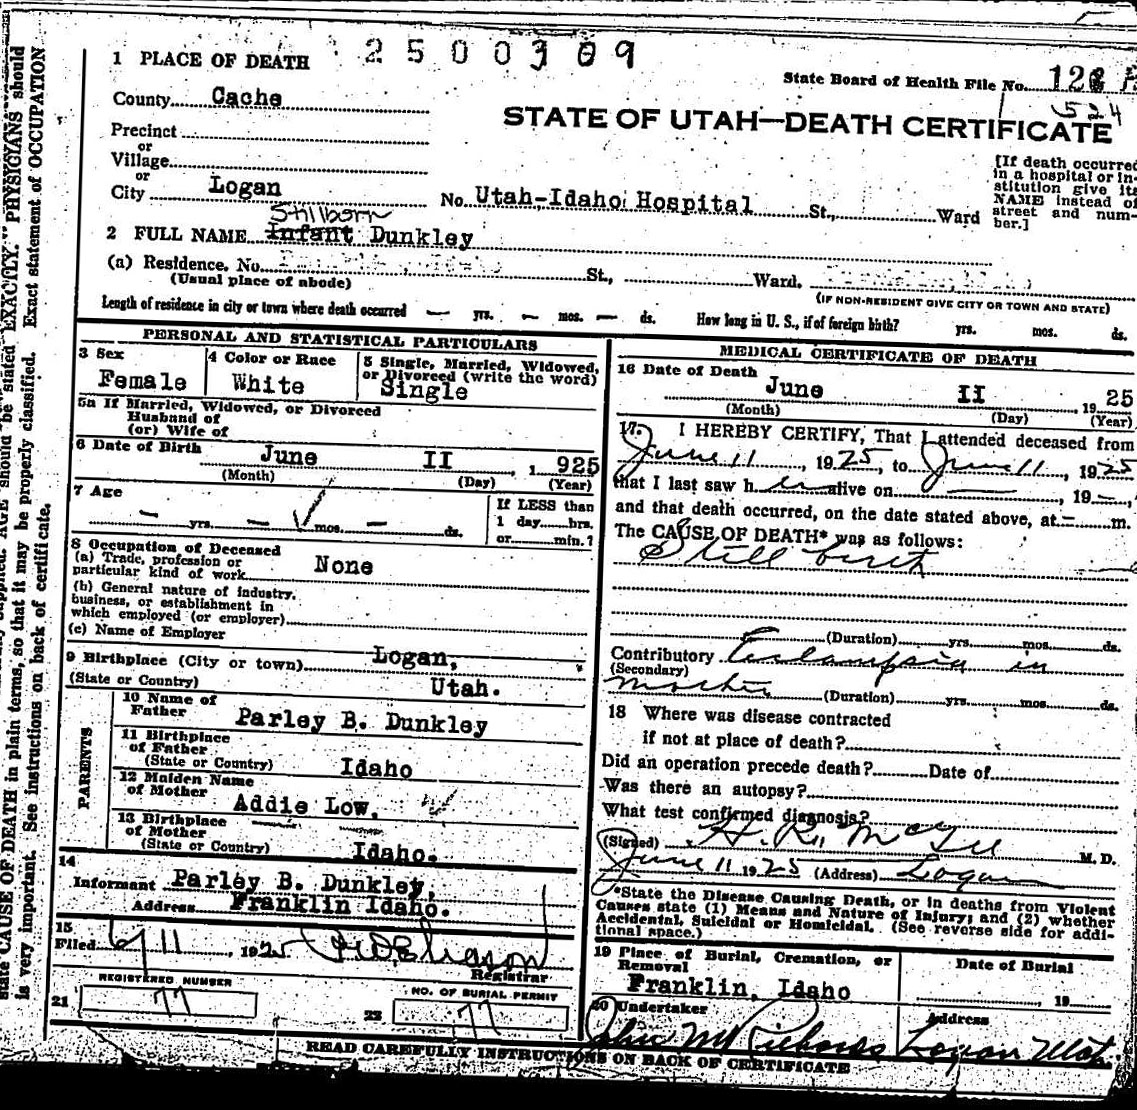 2500309
1 PLACE OF DEATH
State Board of Health File No.
524
County Cache
STATE OF UTAH—DEATH CERTIFICATE
Precinct
or
Village
or
City Logan
No. Utah-Idaho Hospital St., Ward
[If death occurred
in a hospital or in-
stitution give its
NAME instead of
street and num-
ber.]
Stillborn
2 FULL NAME Infant Dunkley
(a) Residence. No. St., Ward.
(Usual place of abode)
(IF NON-RESIDENT GIVE CITY OR TOWN AND STATE)
Length of residence in city or town where death occurred — yrs. — mos. — ds. How long in U. S., if of foreign birth? yrs. mos. ds.
PERSONAL AND STATISTICAL PARTICULARS
3 Sex
Female
4 Color or Race
White
5 Single, Married, Widowed,
or Divorced (write the word)
Single
5a If Married, Widowed, or Divorced
Husband of
(or) Wife of
6 Date of Birth June II, 1925
(Month) (Day) (Year)
7 Age
— yrs. — mos. — ds.
If LESS than
1 day hrs.
or min.?
8 Occupation of Deceased
(a) Trade, profession or
particular kind of work None
(b) General nature of industry,
business, or establishment in
which employed (or employer)
(c) Name of Employer
9 Birthplace (City or town) Logan,
(State or Country) Utah.
PARENTS
10 Name of
Father Parley B. Dunkley
11 Birthplace
of Father
(State or Country) Idaho
12 Maiden Name
of Mother Addie Low.
13 Birthplace
of Mother
(State or Country) Idaho.
14
Informant Parley B. Dunkley,
Address Franklin Idaho.
15
Filed 6/11, 1925
Registrar
REGISTERED NUMBER
21 77
NO. OF BURIAL PERMIT
22 77
MEDICAL CERTIFICATE OF DEATH
16 Date of Death
June II 1925
(Month) (Day) (Year)
17. I HEREBY CERTIFY, That I attended deceased from
June 11, 1925, to June 11, 1925
that I last saw her alive on —, 19—,
and that death occurred, on the date stated above, at — m.
The CAUSE OF DEATH* was as follows:
Still birth
(Duration) yrs. mos. ds.
Contributory Eclampsia in
(Secondary)
mother (Duration) yrs. mos. ds.
18 Where was disease contracted
if not at place of death?
Did an operation precede death? Date of
Was there an autopsy?
What test confirmed diagnosis?
(Signed) H. R. McGee M. D.
June 11 1925 (Address) Logan
*State the Disease Causing Death, or in deaths from Violent
Causes state (1) Means and Nature of Injury; and (2) whether
Accidental, Suicidal or Homicidal. (See reverse side for addi-
tional space.)
19 Place of Burial, Cremation, or
Removal
Franklin, Idaho
Date of Burial
, 19
20 Undertaker
Address
Logan Utah
READ CAREFULLY INSTRUCTIONS ON BACK OF CERTIFICATE
AGE should be stated EXACTLY. PHYSICIANS should
state CAUSE OF DEATH in plain terms, so that it may be properly classified. Exact statement of OCCUPATION
is very important. See instructions on back of certificate.